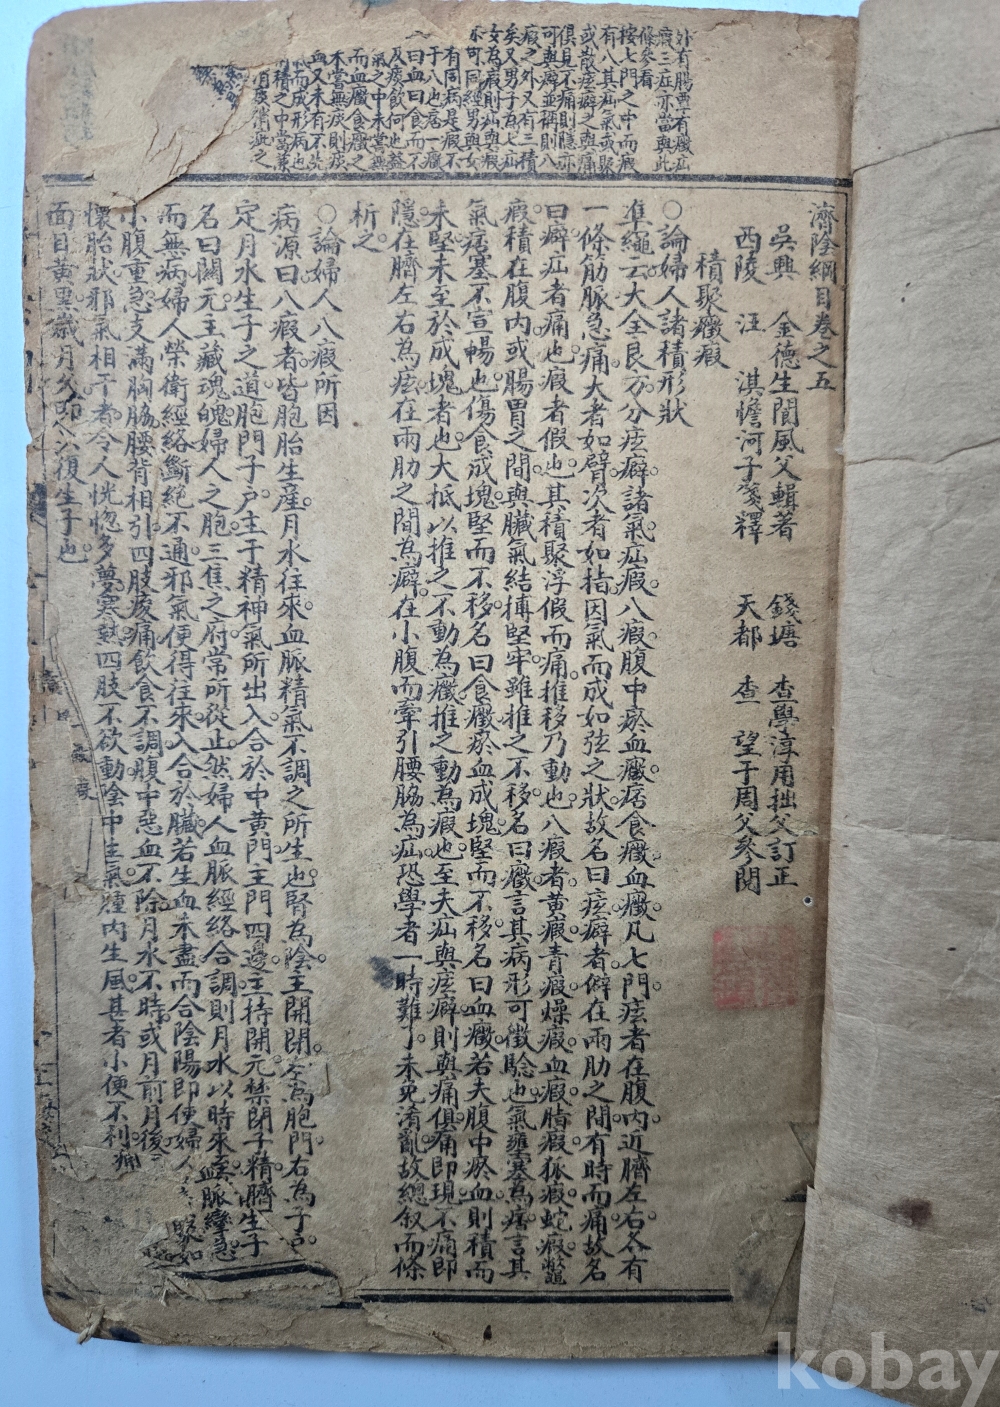 外有腸覃有癥疝
瘕三症亦當與此
條參看
按七門之中而瘕
有八其疝氣或聚
或散痃癖之與痛
俱見不痛則隱亦
可與癖並稱則八
瘕之外又有三積
矣又男子為七疝
女為瘕則疝與瘕
亦可同經男與女
有同病是瘕不
于八也痞一癥
曰血曰食而不
及痰飲何也蓋
氣之中未嘗無
而血癥食癥之
未嘗無痰則痰
血又未有不先
氣而成形病也
積之中當兼
消痰消疵之
濟陰綱目卷之五
吳興 金德生閬風父輯著 錢塘 查學淳用拙父訂正
西陵 汪 淇憺河子箋釋 天都 查 望于周父參閱
積聚癥瘕
○論婦人諸積形狀
準繩云大全良方分痃癖諸氣疝瘕八瘕腹中瘀血癥痞食癥血癥凡七門痃者在腹內近臍左右各有
一條筋脈急痛大者如臂次者如指因氣而成如弦之狀故名曰痃癖者僻在兩肋之間有時而痛故名
曰癖疝者痛也瘕者假也其積聚浮假而痛推移乃動也八瘕者黃瘕青瘕燥瘕血瘕脂瘕狐瘕蛇瘕鱉
瘕積在腹內或腸胃之間與臟氣結摶堅牢雖推之不移名曰癥言其病形可徵驗也氣壅塞為痞言其
氣痞塞不宣暢也傷食成塊堅而不移名曰食癥瘀血成塊堅而不移名曰血癥若夫腹中瘀血則積而
未堅未至於成塊者也大抵以推之不動為癥推之動為瘕也至夫疝與痃癖則與痛俱痛即現不痛即
隱在臍左右為痃在兩肋之間為癖在小腹而牽引腰脇為疝恐學者一時難了未免淆亂故總敘而條
析之
○論婦人八瘕所因
病源曰八瘕者皆胞胎生產月水往來血脈精氣不調之所生也腎為陰主開閉左為胞門右為子戶
定月水生子之道胞門子戶主子精神氣所出入合於中黃門主門四邊主持關元禁閉子精臍生子
名曰關元主藏魂魄婦人之胞三焦之府常所從止然婦人血脈經絡合調則月水以時來至脈攣急
而無病婦人榮衛經絡斷絕不通邪氣便得往來入合於臟若生血未盡而合陰陽即便婦人
小腹重急支滿胸脇腰背相引四肢痠痛飲食不調腹中惡血不除月水不時或月前月後
懷胎狀邪氣相干者令人恍惚多夢寒熱四肢不欲動陰中生氣腫內生風甚者小便不利
面目黃黑歲月久即不復生子也